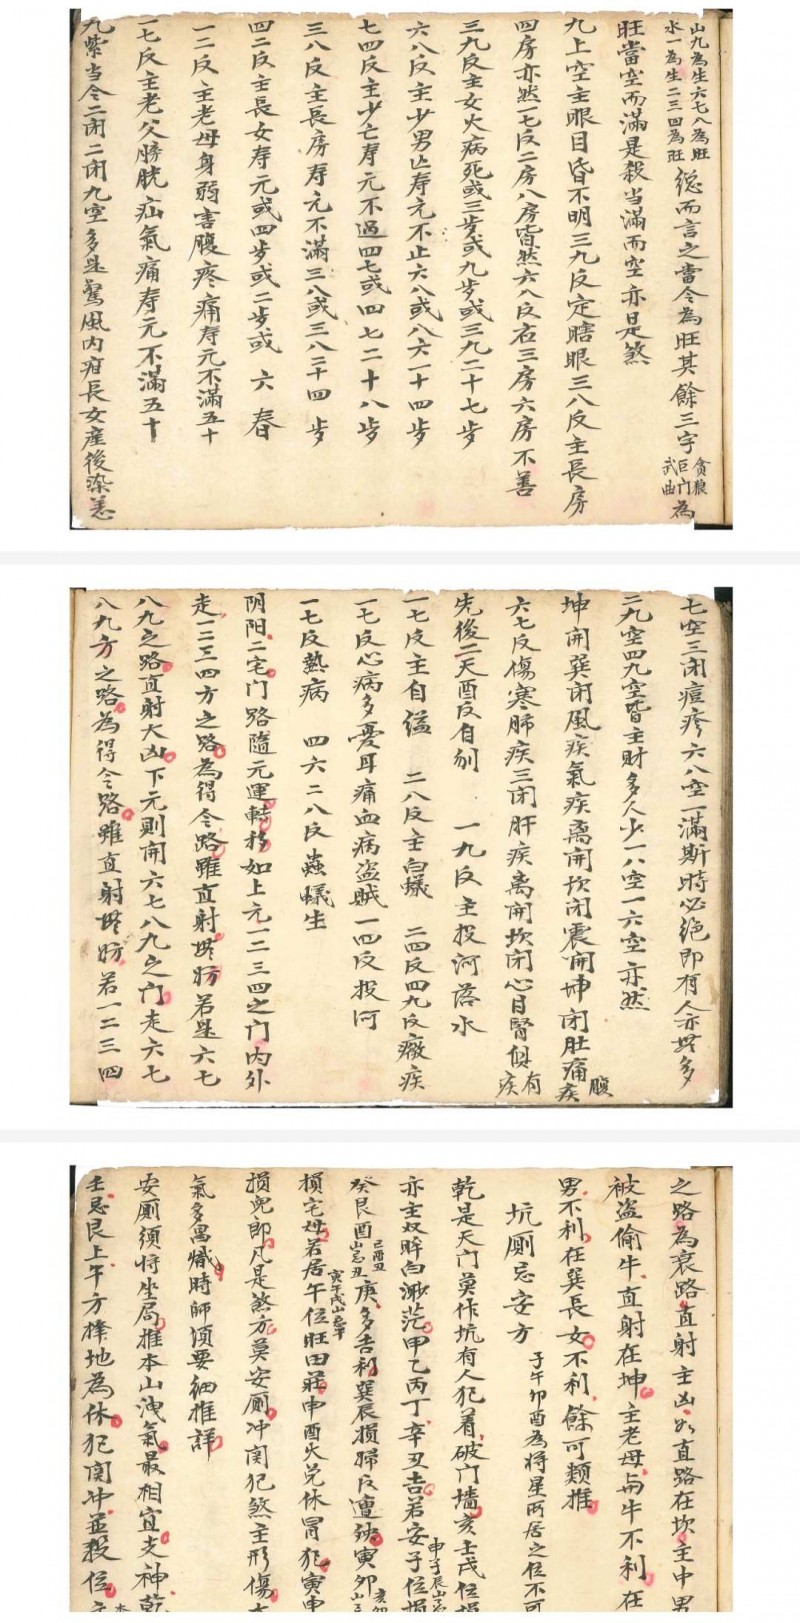 山九為生六七八為旺
水一為生二三四為旺
總而言之當令為旺其餘三字
貪狼
巨门
武曲
為
旺當空而滿是殺当滿而空亦是煞
九上空主眼目昏不明三九反定瞎眼三八反主長房
四房亦然一七反二房八房皆然六八反右三房六房不善
三九反主女火病死或三步或九步或三九二十七步
六八反主少男亡寿元不止六八或八六一十四步
七四反主少亡寿元不過四七或四七二十八步
三八反主長房寿元不滿三八或三八二十四步
四二反主長女寿元或四步或二步或六春
一二反主老母身弱害腹疼痛寿元不滿五十
一七反主老父膀胱疝氣痛寿元不滿五十
九紫当令二闭二闭九空多是驚風内疳長女産後染恙
七空三闭痘疹六八空一滿斯時必绝即有人亦無多
二九空四九空皆主財多人少一八空一六空亦然
坤開巽闭風疾氣疾离開坎闭震開坤闭肚腹痛疾
六七反傷寒肺疾三闭肝疾离開坎闭心目腎俱有疾
先後二天酉反自刎 一九反主投河落水
一七反主自缢 二八反主白蟻 二四反四九反癥疾
一七反心病多憂耳痛血病盗賊一四反投河
一七反热病 四六二八反蟲蟻生
阴阳二宅门路隨元運轉移如上元一二三四之门内外
走一二三四方之路為得令路雖直射無妨若是六七
八九之路直射大凶下元則開六七八九之门走六七
八九方之路為得令路雖直射無妨若一二三四
之路為衰路直射主凶如直路在坎主中男
被盗偷牛直射在坤主老母与牛不利在
男不利在巽長女不利餘可類推
坑厕忌安方
子午卯酉為将星所居之位不可
乾是天门莫作坑有人犯着破门墙亥壬戌位損
申子辰山
亦主双眸白渺茫甲乙丙丁辛丑吉若安子位損
癸艮酉
己酉丑
山忌丑
庚多吉利巽辰損婦反遭殃寅卯
損宅母若居午位旺田莊申酉火兑休冒犯寅申
寅午戌山忌午
損兒郎凡是煞方莫安厕冲関犯煞主形傷
氣多禹熾時師須要细推詳
安厕須将坐局推本山洩氣最相宜支神乾
壬忌艮上午方擇地為休犯関冲並殺位